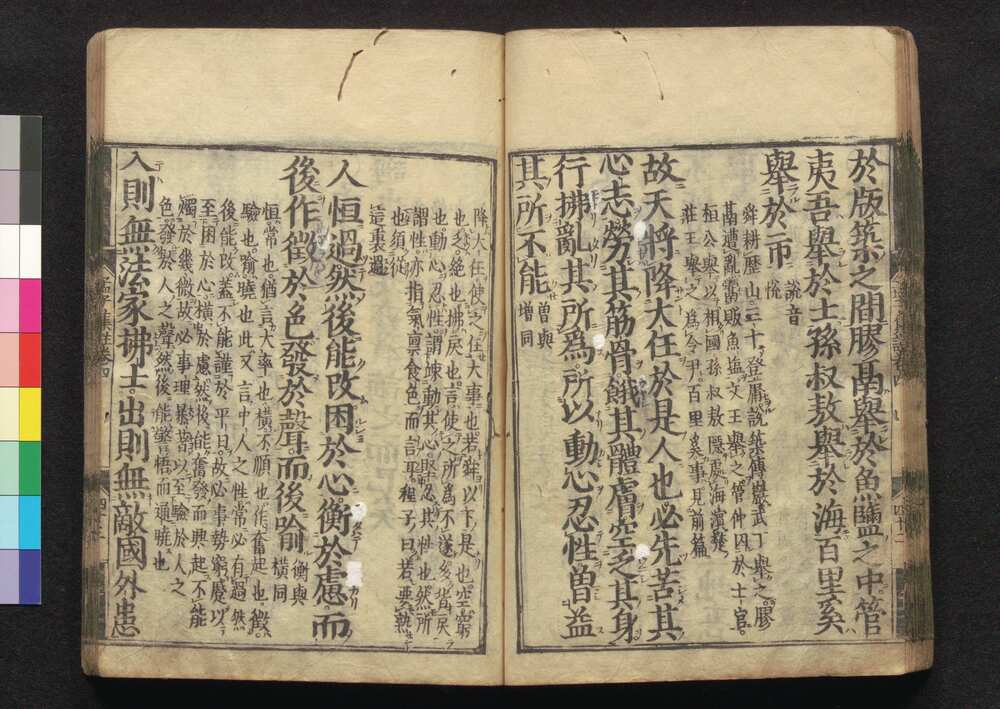 於版築之間膠鬲舉於魚鹽之中管
夷吾舉於士孫叔敖舉於海百里奚
舉於市 說音悅
舜耕歷山三十登庸說築傅巖武丁舉之膠
鬲遭亂鬻販魚塩文王舉之管仲囚於士官
桓公舉以相國孫叔敖隱處海濱楚
莊王舉之為令尹百里奚事見前篇
故天將降大任於是人也必先苦其
心志勞其筋骨餓其體膚空乏其身
行拂亂其所為所以動心忍性曾益
其所不能 曾與增同
降大任使之任大事也若舜以下是也空窮
也乏絕也拂戾也言使之所為不遂多背戾
也動心忍性謂竦動其心堅忍其性也然所
謂性亦指氣稟食色而言耳程子曰若要熟
也須從
這裏過
人恒過然後能改困於心衡於慮而
後作徵於色發於聲而後喻 衡與橫同
恒常也猶言大率也橫不順也作奮起也徵
驗也喻曉也此又言中人之性常必有過然
後能改蓋不能謹於平日故必事勢窮蹙以
至困於心橫於慮然後能奮發而興起不能
燭於幾微故必事理暴著以至驗於人之
色發於人之聲然後能警悟而通曉也
入則無法家拂士出則無敵國外患